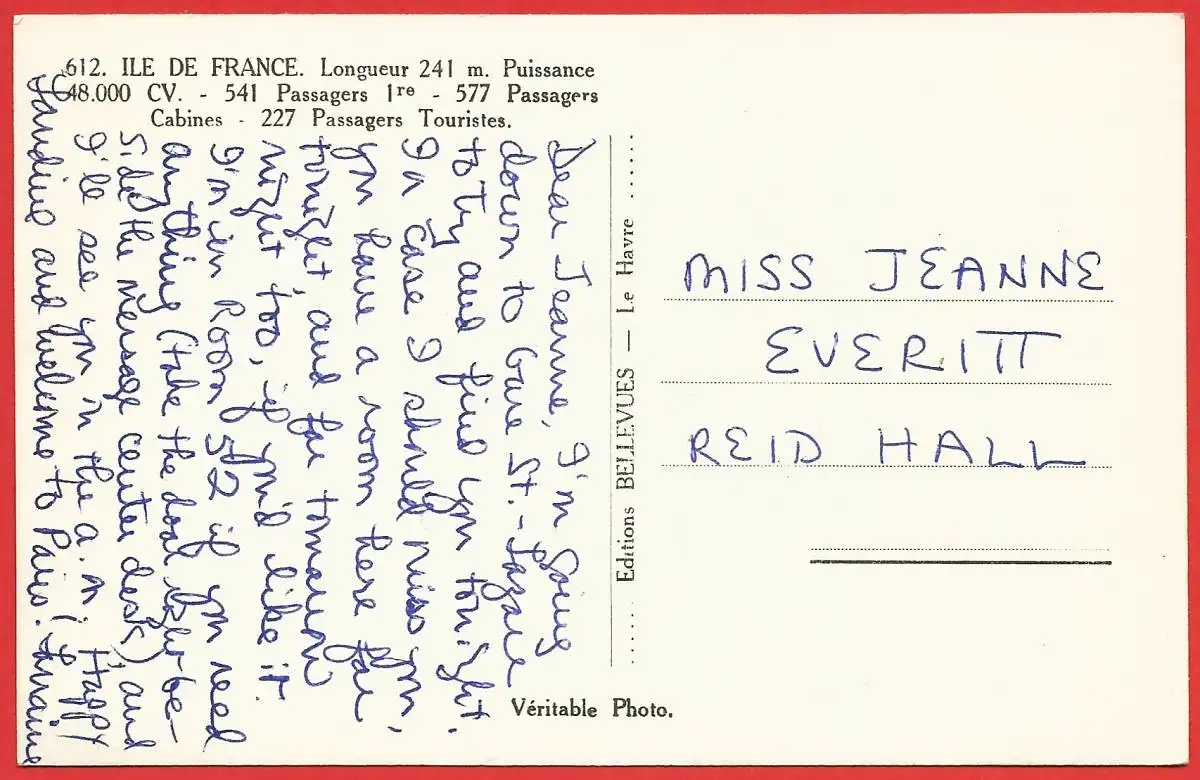 612. ILE DE FRANCE. Longueur 241 m. Puissance
48.000 CV. - 541 Passagers 1re - 577 Passagers
Cabines - 227 Passagers Touristes.
Dear Jeanne, I'm going
down to Gare St.-Lazare
to try and find you tonight.
In case I should miss you,
you have a room here for
tonight, and for tomorrow
night too, if you'd like it.
I'm in Room 52 if you need
anything (take the door right be-
side the message center desk) and
I'll see you in the a.m! Happy
landing and welcome to Paris! Lorraine
Editions BELLEVUES — Le Havre
MISS JEANNE
EVERITT
REID HALL
Véritable Photo.